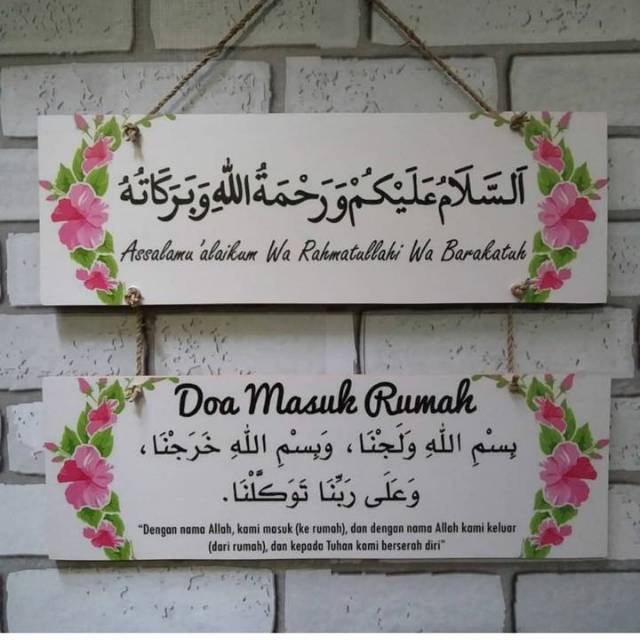 اَلسَّلَامُ عَلَيْكُمْ وَرَحْمَةُ اللهِ وَبَرَكَاتُهُ
Assalamu'alaikum Wa Rahmatullahi Wa Barakatuh
Doa Masuk Rumah
بِسْمِ اللهِ وَلَجْنَا، وَبِسْمِ اللهِ خَرَجْنَا،
وَعَلَى رَبِّنَا تَوَكَّلْنَا.
“Dengan nama Allah, kami masuk (ke rumah), dan dengan nama Allah kami keluar
(dari rumah), dan kepada Tuhan kami berserah diri”